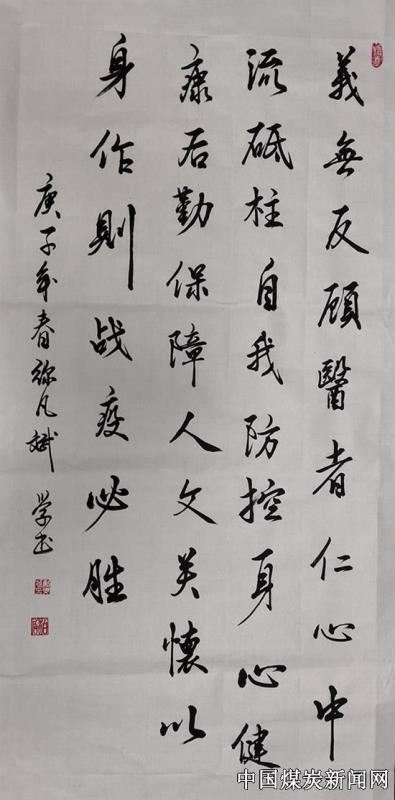 義無反顧醫者仁心中
流砥柱自我防控身心健
康后勤保障人文关懷以
身作則战疫必胜
庚子年春凡斌学书
中国煤炭新闻网